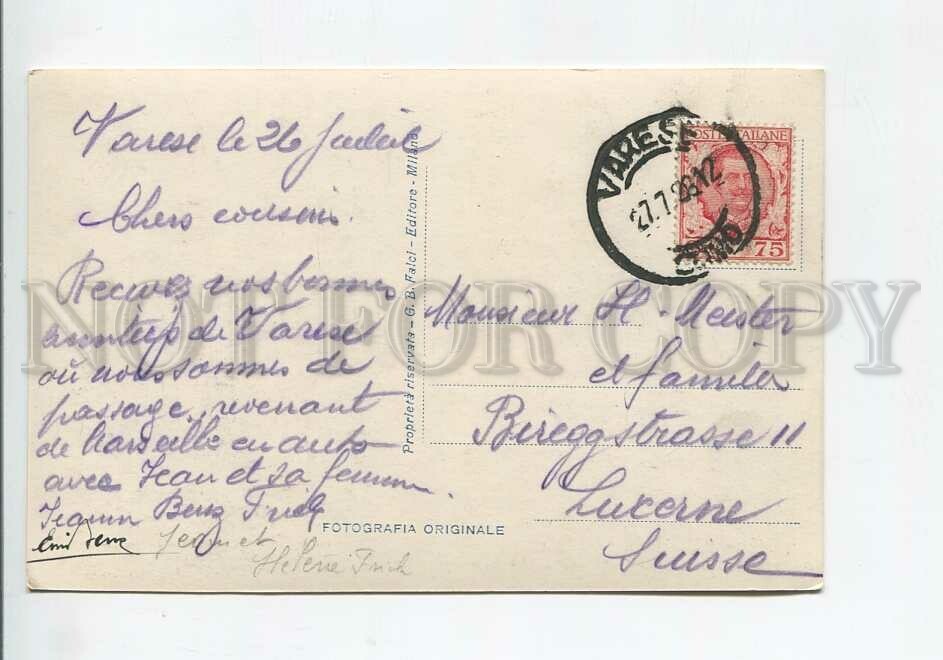 Varese le 26 Juillet
Chers cousins.
Recevez nos bonnes
de Varese
où nous sommes de
passage, revenant
de Marseille en auto
avec Jean et sa femme.
Benz Frick
Jean et
Helene Frick
Proprietà riservata - G. B. Falci - Editore - Milano
FOTOGRAFIA ORIGINALE
VARESE
27.7.28.12
POSTE ITALIANE
75
Monsieur H. Meister
et famille
Bireggstrasse 11
Luzerne
Suisse
NOT FOR COPY